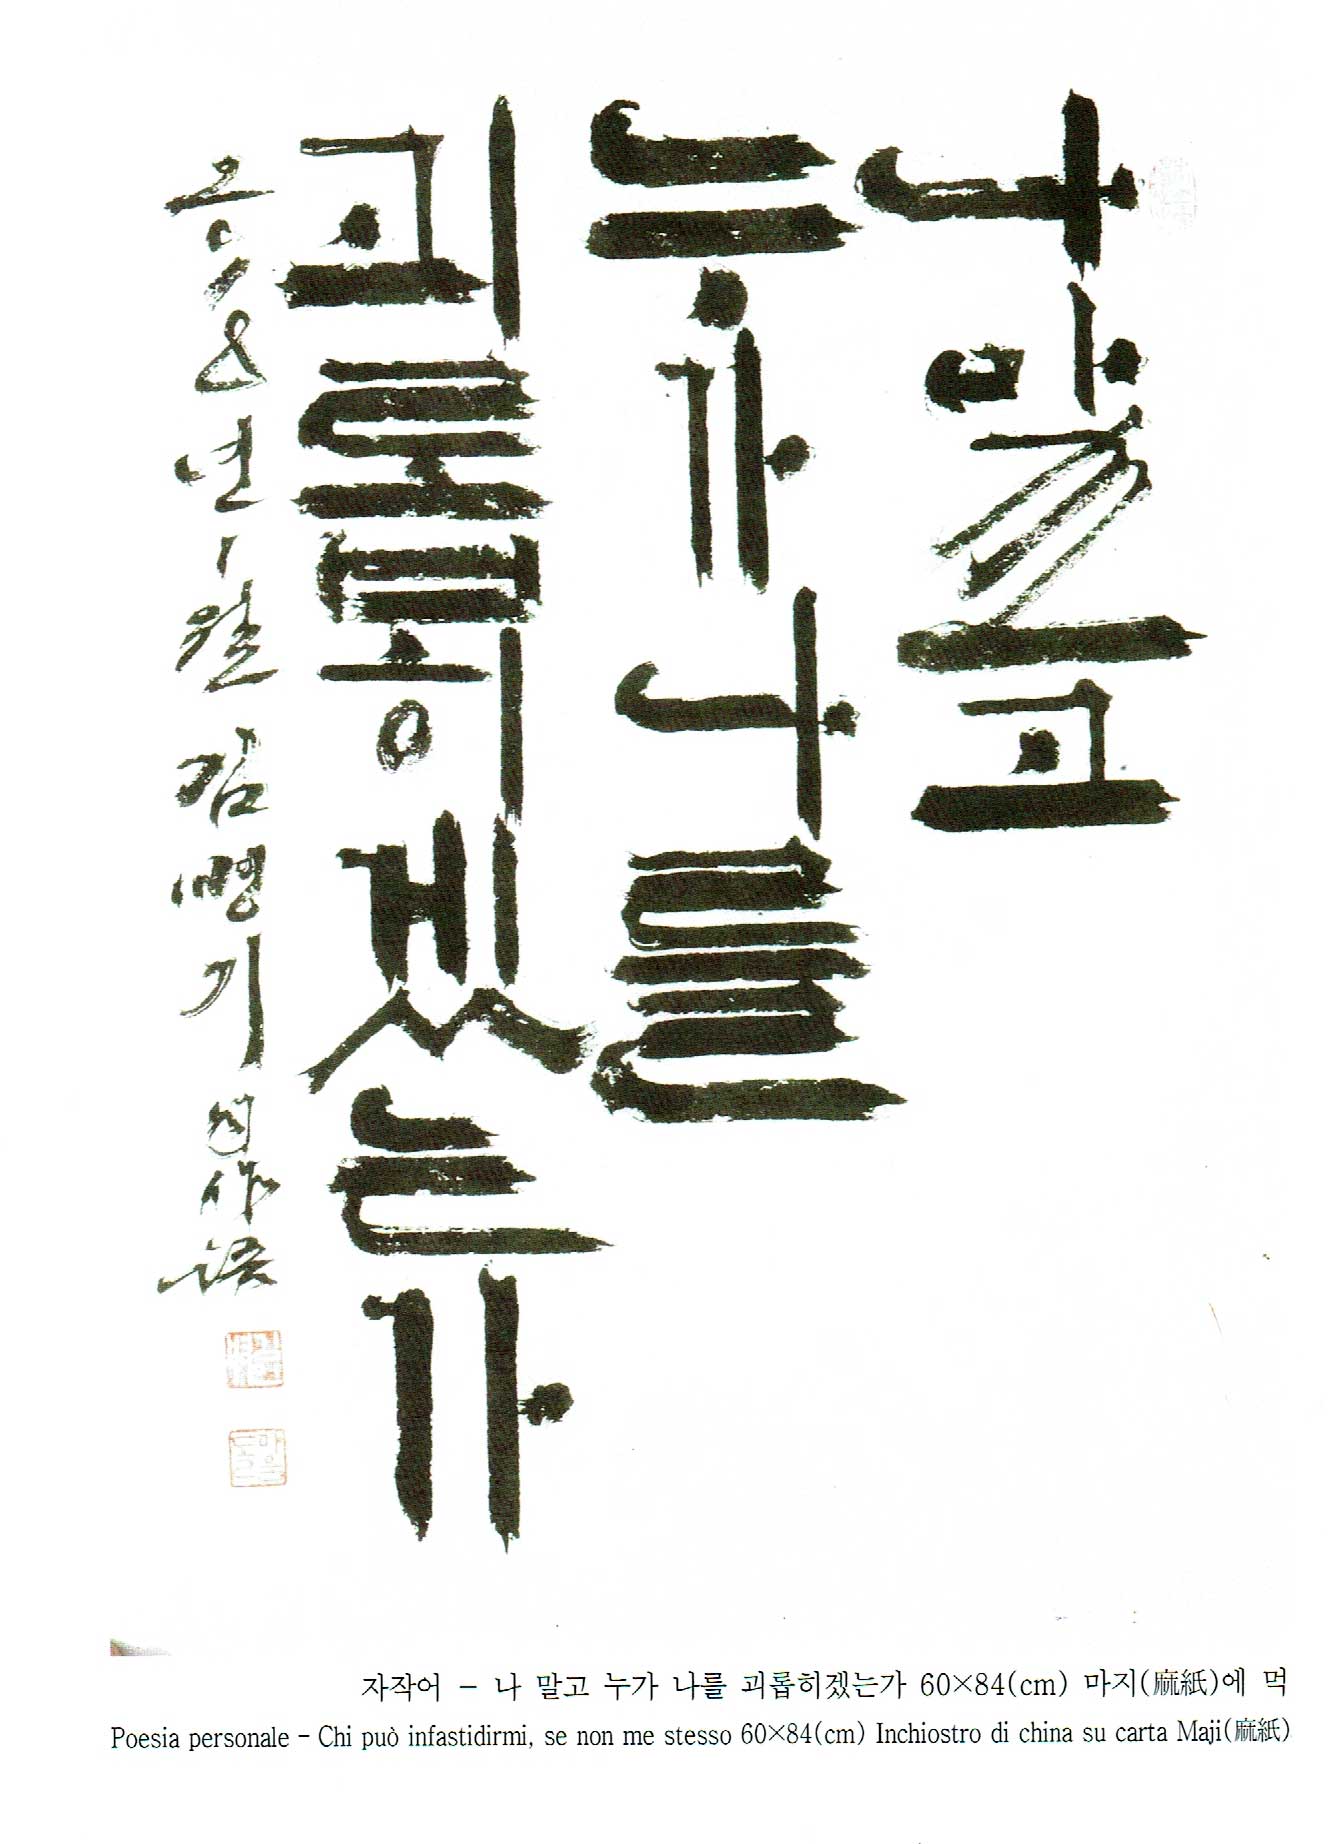 나 말고
누가 나를
괴롭히겠는가
2008년 1월 김병기 自作語
자작어 – 나 말고 누가 나를 괴롭히겠는가 60×84(cm) 마지(麻紙)에 먹
Poesia personale – Chi può infastidirmi, se non me stesso 60×84(cm) Inchiostro di china su carta Maji(麻紙)